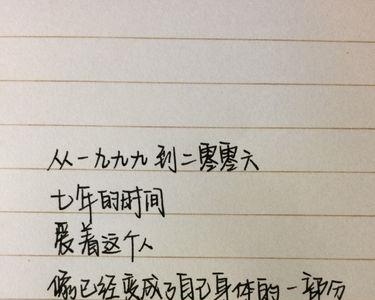 从一九九九到二零零六
七年的时间
爱着这个人
像已经变成了自己身体的一部分